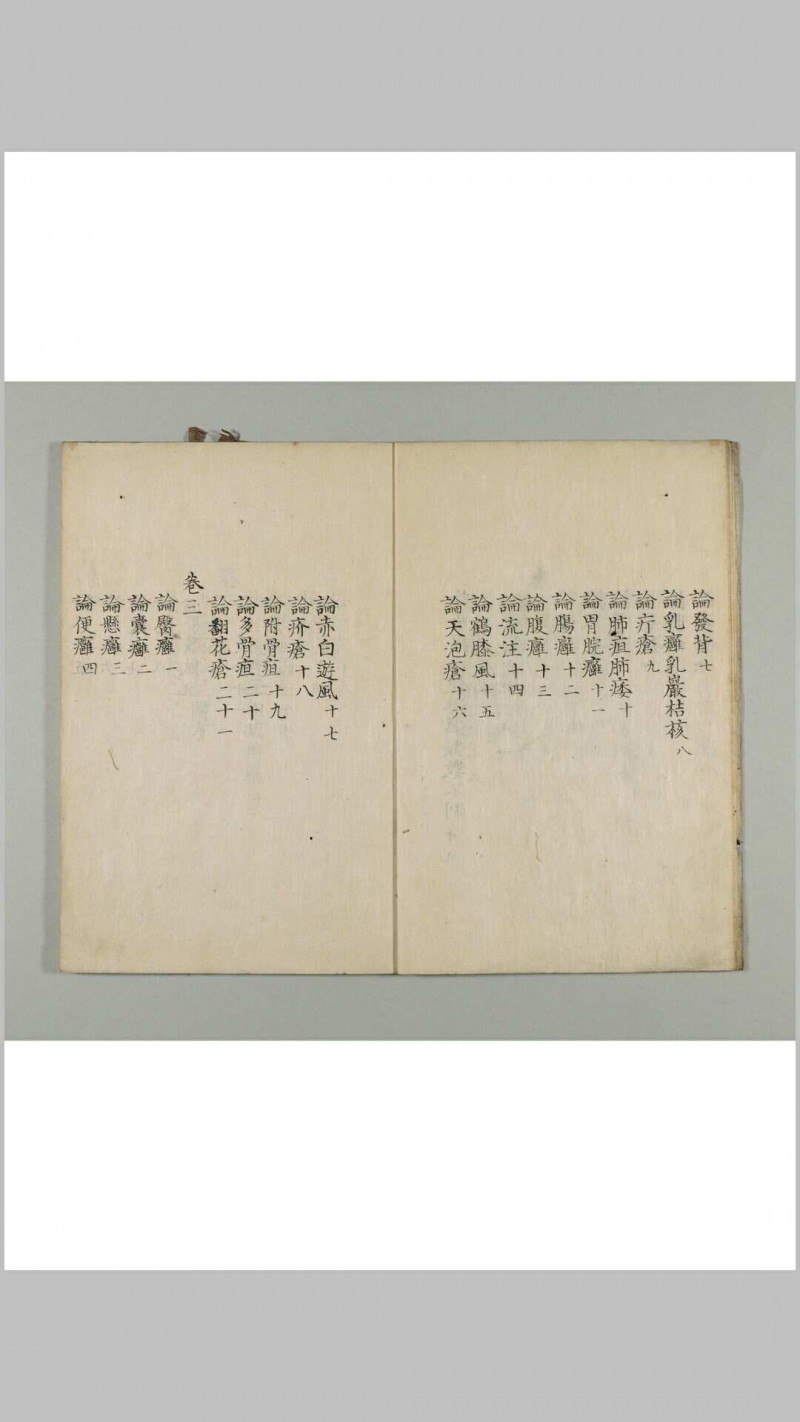 論發背七
論乳癰乳巖桔核八
論疔瘡九
論肺疽肺痿十
論胃脘癰十一
論腸癰十二
論腹癰十三
論流注十四
論鶴膝風十五
論天泡瘡十六
論赤白遊風十七
論疥瘡十八
論附骨疽十九
論多骨疽二十
論翻花瘡二十一
卷三
論臀癰一
論囊癰二
論懸癰三
論便癰四